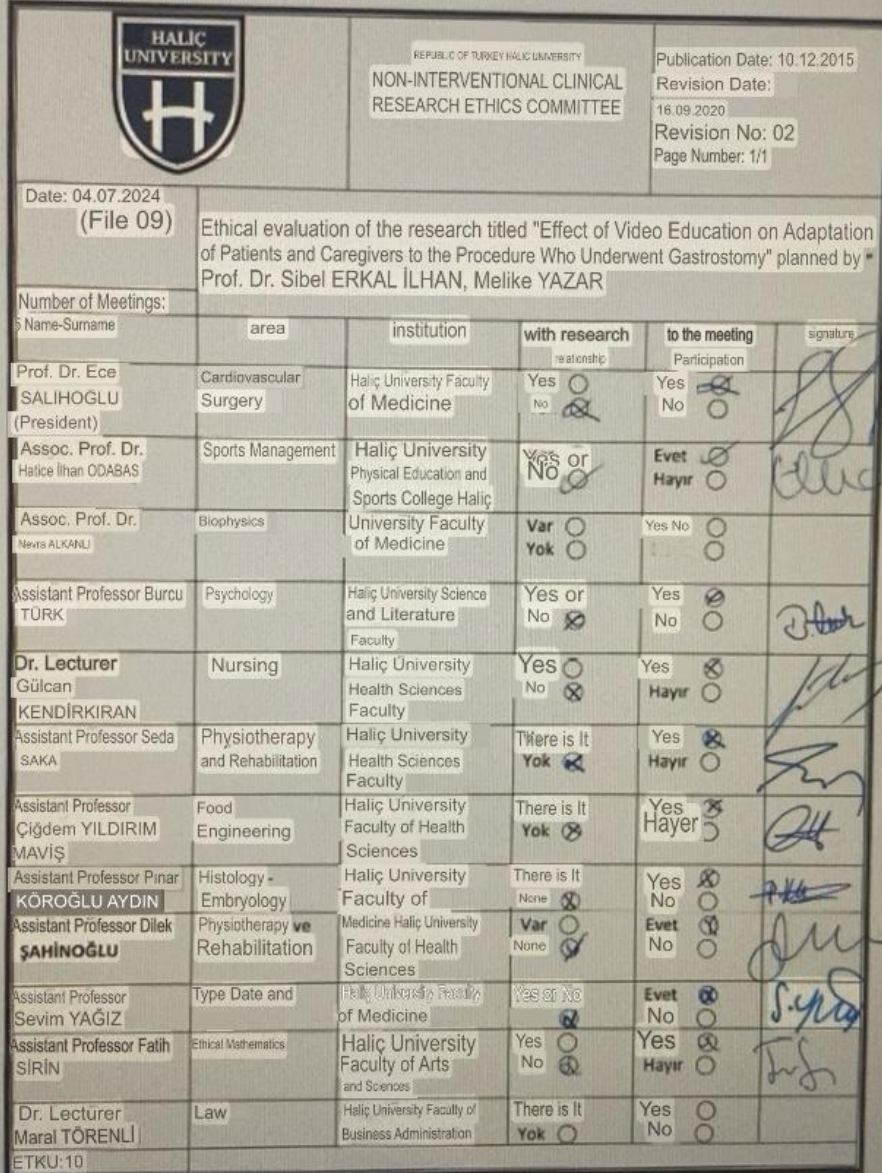 HALİÇ
UNIVERSITY
REPUBLIC OF TURKEY HALIC UNIVERSITY
NON-INTERVENTIONAL CLINICAL
RESEARCH ETHICS COMMITTEE
Publication Date: 10.12.2015
Revision Date:
16.09.2020
Revision No: 02
Page Number: 1/1
Date: 04.07.2024
(File 09)
Number of Meetings:
Ethical evaluation of the research titled "Effect of Video Education on Adaptation
of Patients and Caregivers to the Procedure Who Underwent Gastrostomy" planned by
Prof. Dr. Sibel ERKAL İLHAN, Melike YAZAR
5 Name-Surname
area
institution
with research
relationship
to the meeting
Participation
signature
Prof. Dr. Ece
SALIHOGLU
(President)
Cardiovascular
Surgery
Haliç University Faculty
of Medicine
Yes
No
Yes
No
Assoc. Prof. Dr.
Hatice İlhan ODABAS
Sports Management
Haliç University
Physical Education and
Sports College Haliç
Yes or
No
Evet
Hayır
Assoc. Prof. Dr.
Nevra ALKANLI
Biophysics
University Faculty
of Medicine
Var
Yok
Yes No
Assistant Professor Burcu
TÜRK
Psychology
Haliç University Science
and Literature
Faculty
Yes or
No
Yes
No
Dr. Lecturer
Gülcan
KENDİRKIRAN
Nursing
Haliç University
Health Sciences
Faculty
Yes
No
Yes
Hayır
Assistant Professor Seda
SAKA
Physiotherapy
and Rehabilitation
Haliç University
Health Sciences
Faculty
There is It
Yok
Yes
Hayır
Assistant Professor
Çiğdem YILDIRIM
MAVİŞ
Food
Engineering
Haliç University
Faculty of Health
Sciences
There is It
Yok
Yes
Hayer
Assistant Professor Pınar
KÖROĞLU AYDIN
Histology -
Embryology
Haliç University
Faculty of
There is It
None
Yes
No
Assistant Professor Dilek
ŞAHİNOĞLU
Physiotherapy ve
Rehabilitation
Medicine Haliç University
Faculty of Health
Sciences
Var
None
Evet
No
Assistant Professor
Sevim YAĞIZ
Type Date and
Haliç University Faculty
of Medicine
Yes or No
Evet
No
Assistant Professor Fatih
SİRİN
Ethical Mathematics
Haliç University
Faculty of Arts
and Sciences
Yes
No
Yes
Hayır
Dr. Lecturer
Maral TÖRENLİ
Law
Haliç University Faculty of
Business Administration
There is It
Yok
Yes
No
ETKU:10